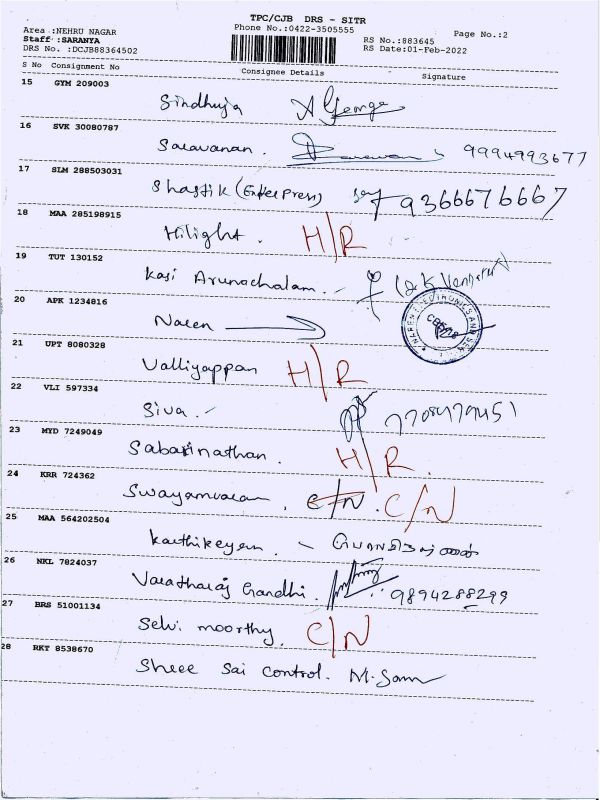 TPC/CJB DRS - SITR
Area :NEHRU NAGAR Phone No.:0422-3505555 Page No.:2
Staff :SARANYA RS No.:883645
DRS No. :DCJB88364502 RS Date:01-Feb-2022
S No Consignment No Consignee Details Signature
15 GYM 209003
Sindhuja A George
16 SVK 30080787
Saravanan. 9994993677
17 SLM 288503031
Shastik (Enterpress) 9366676667
18 MAA 285198915
Hilight. H/R
19 TUT 130152
Kasi Arunachalam.
20 APK 1234816
Naren
21 UPT 8080328
Valliyappan H/R
22 VLI 597334
Siva.
23 MYD 7249049
Sabarinathan. H/R.
24 KRR 724362
Swayamvaram. C/N. C/N
25 MAA 564202504
Karthikeyan.
26 NKL 7824037
Varatharaj Gandhi. 9894288299
27 BRS 51001134
Selvi moorthy. C/N
28 RKT 8538670
Shree Sai control.